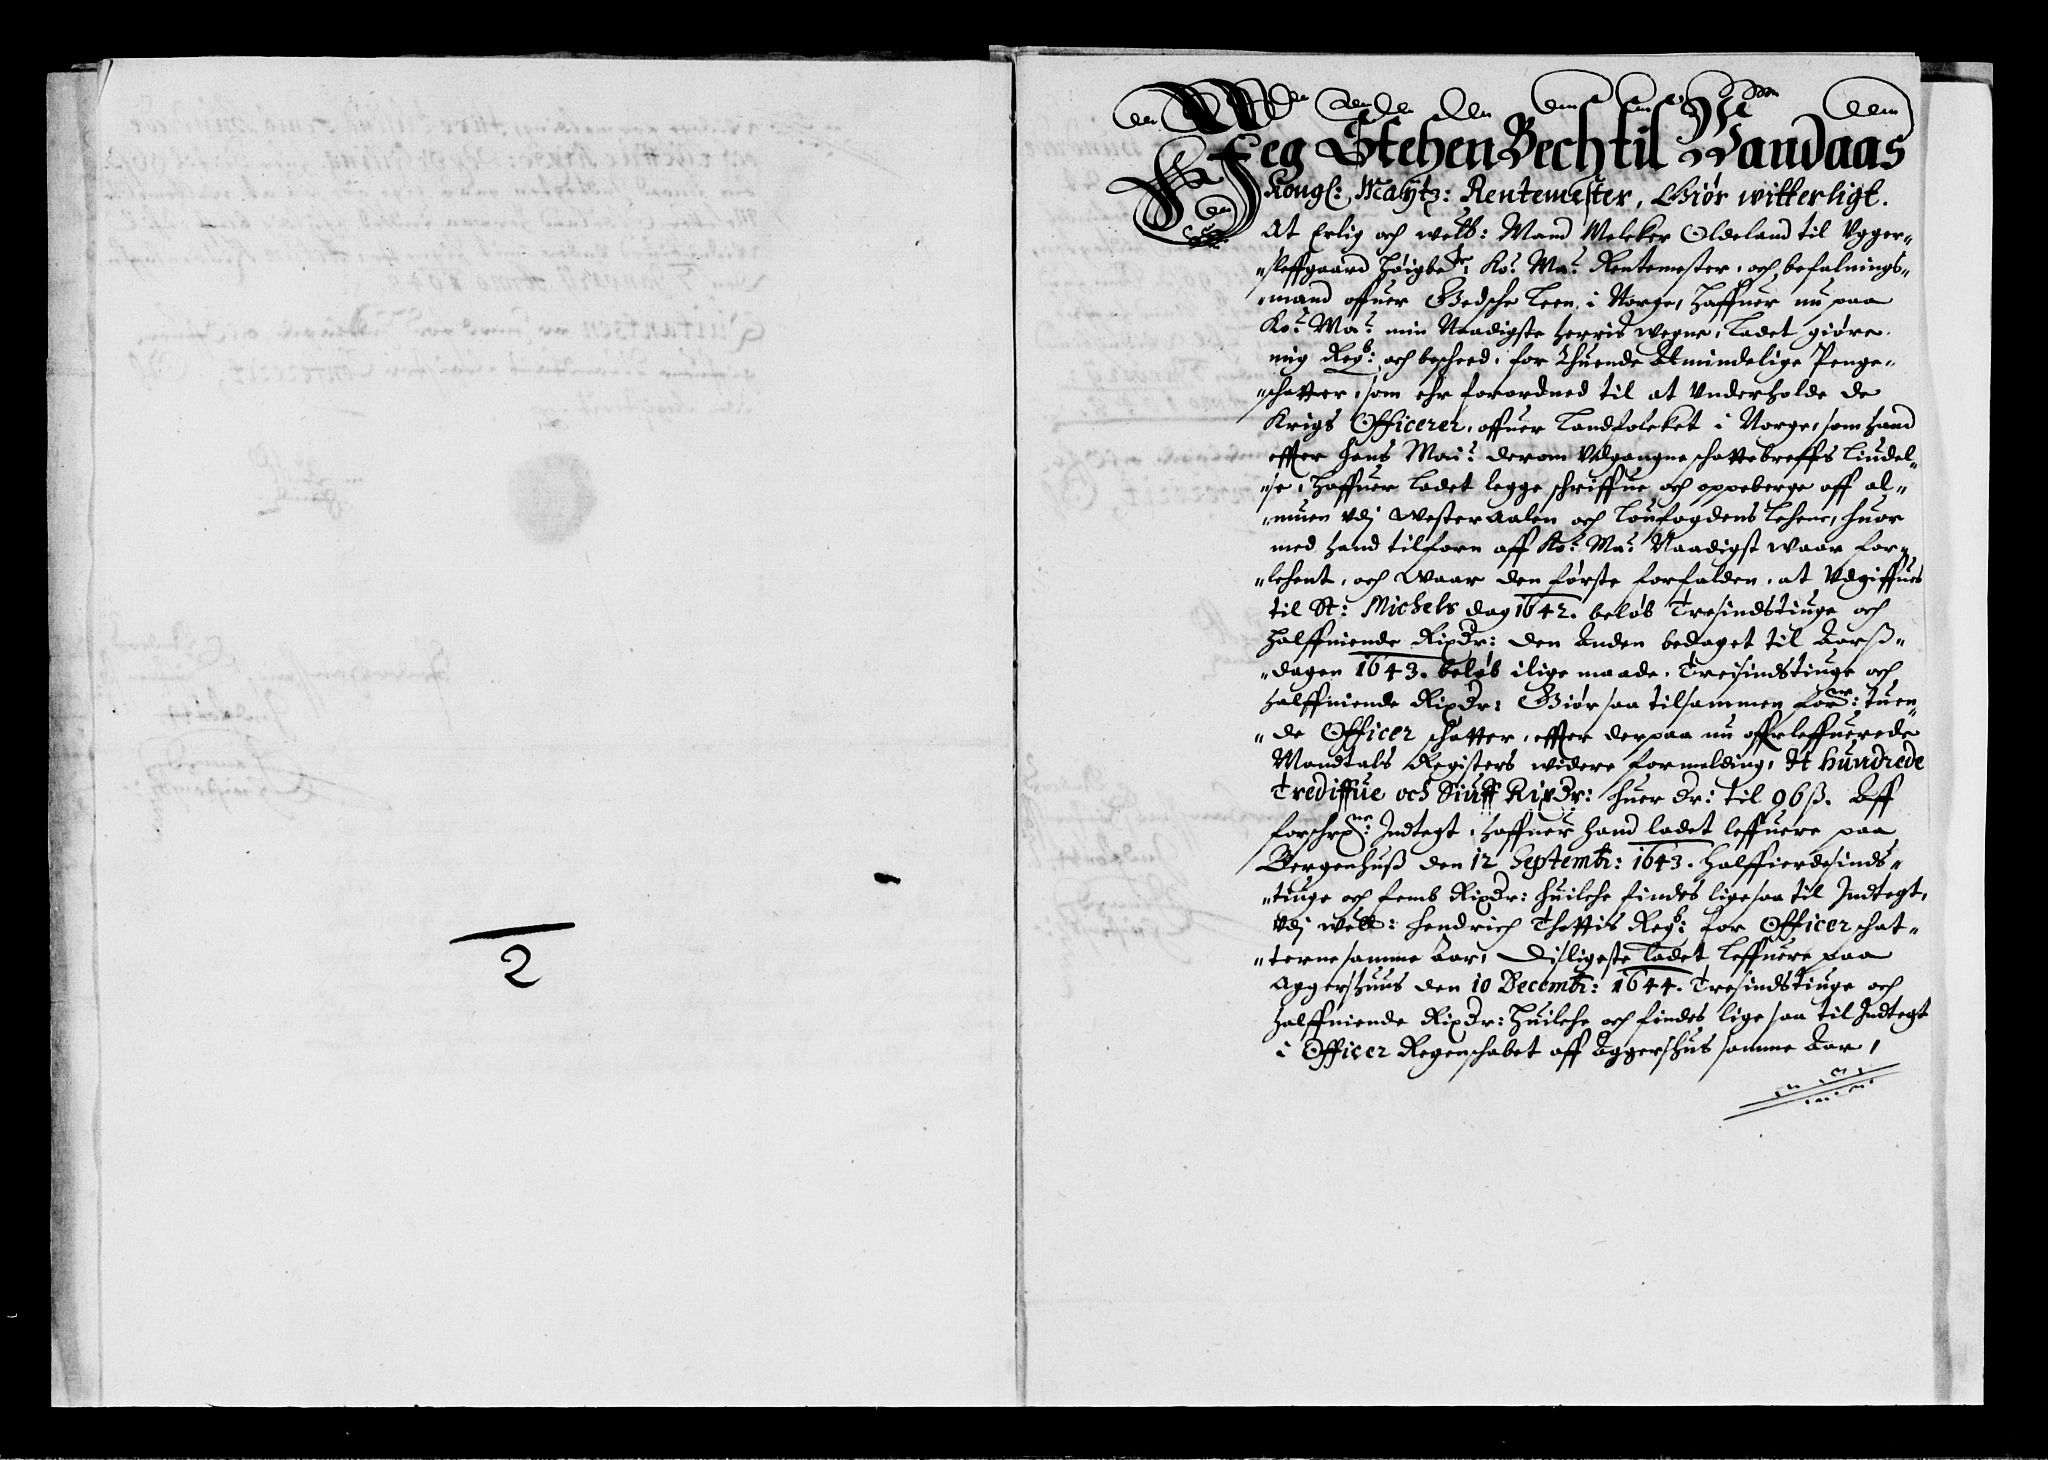 2
Jeg Stehen Bech til Wandaas
Kongl: Maÿtz: Rentemester, Giör witterligt.
At Erlig och welb: Mand Melcker Oldeland til Vgger-
-sleffgaard höigbe^te: Ko: Ma: Rentemester, och befalnings-
-mand offuer Gedsche Leen i Norge, Haffuer nu paa
Ko: Ma: min Naadigste Herris wegne, ladet giöre
mig Regb: och bescheed, for thuende Almindelige Penge-
-schatter, som ehr forordned til at Vnderholde de
Krigs Officerer, offuer Landfolcket i Norge, som hand
effter Hans Mai: derom Vdgangne schattebreffs liudel-
-se, Haffuer ladet legge schriffue och oppeberge aff al-
-muen vdj WesterAalen och Loufogdens Lehene, huor
med hand tilforn aff Ko: Ma: Naadigst waar for-
-lehent, och Waar den förste forfalden, at Vdgiffues
til St: Michels dag 1642. belöb Tresindstiuge och
halffniende Rixdr: den Anden bedaget til Aarss-
-dagen 1643. belöb ilige maade, Treisindstiuge och
halffniende Rixdr: Giör saa tilsammen for^ne: tuen-
-de Officer schatter, effter derpaa nu offrleffuerede
Mandtals Registers widere formelding, It hundrede
Trediffue och Siuff Rixdr: huer dr: til 96 ß. Aff
forschr^ne: Indtegt, haffuer hand ladet leffuere paa
Bergenhuß den 12 Septembr: 1643. halffierdesinds-
-tiuge och femb Rixdr: huilche findes ligesaa til Indtegt,
vdj welb: Hendrich Thottis Regb: for Officer schat-
-terne samme Aar, Disligeste ladet leffuere paa
Aggershuus den 10 Decembr: 1644. Tresindstiuge och
halffniende Rixdr: huilche och findes lige saa til Indtegt
i Officer Regenschabet aff Aggershus samme Aar,